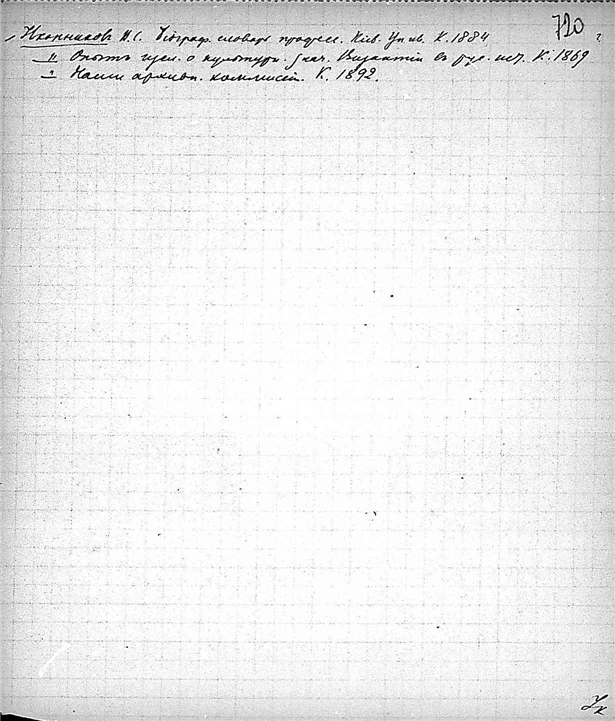 720
Иконников В.С. Біограф. словарь професс. Кіев. Унив. К. 1884
" Опытъ изсл. о культурн. знач. Византіи въ рус. ист. К. 1869
" Наши архивн. коммиссіи. К. 1892.